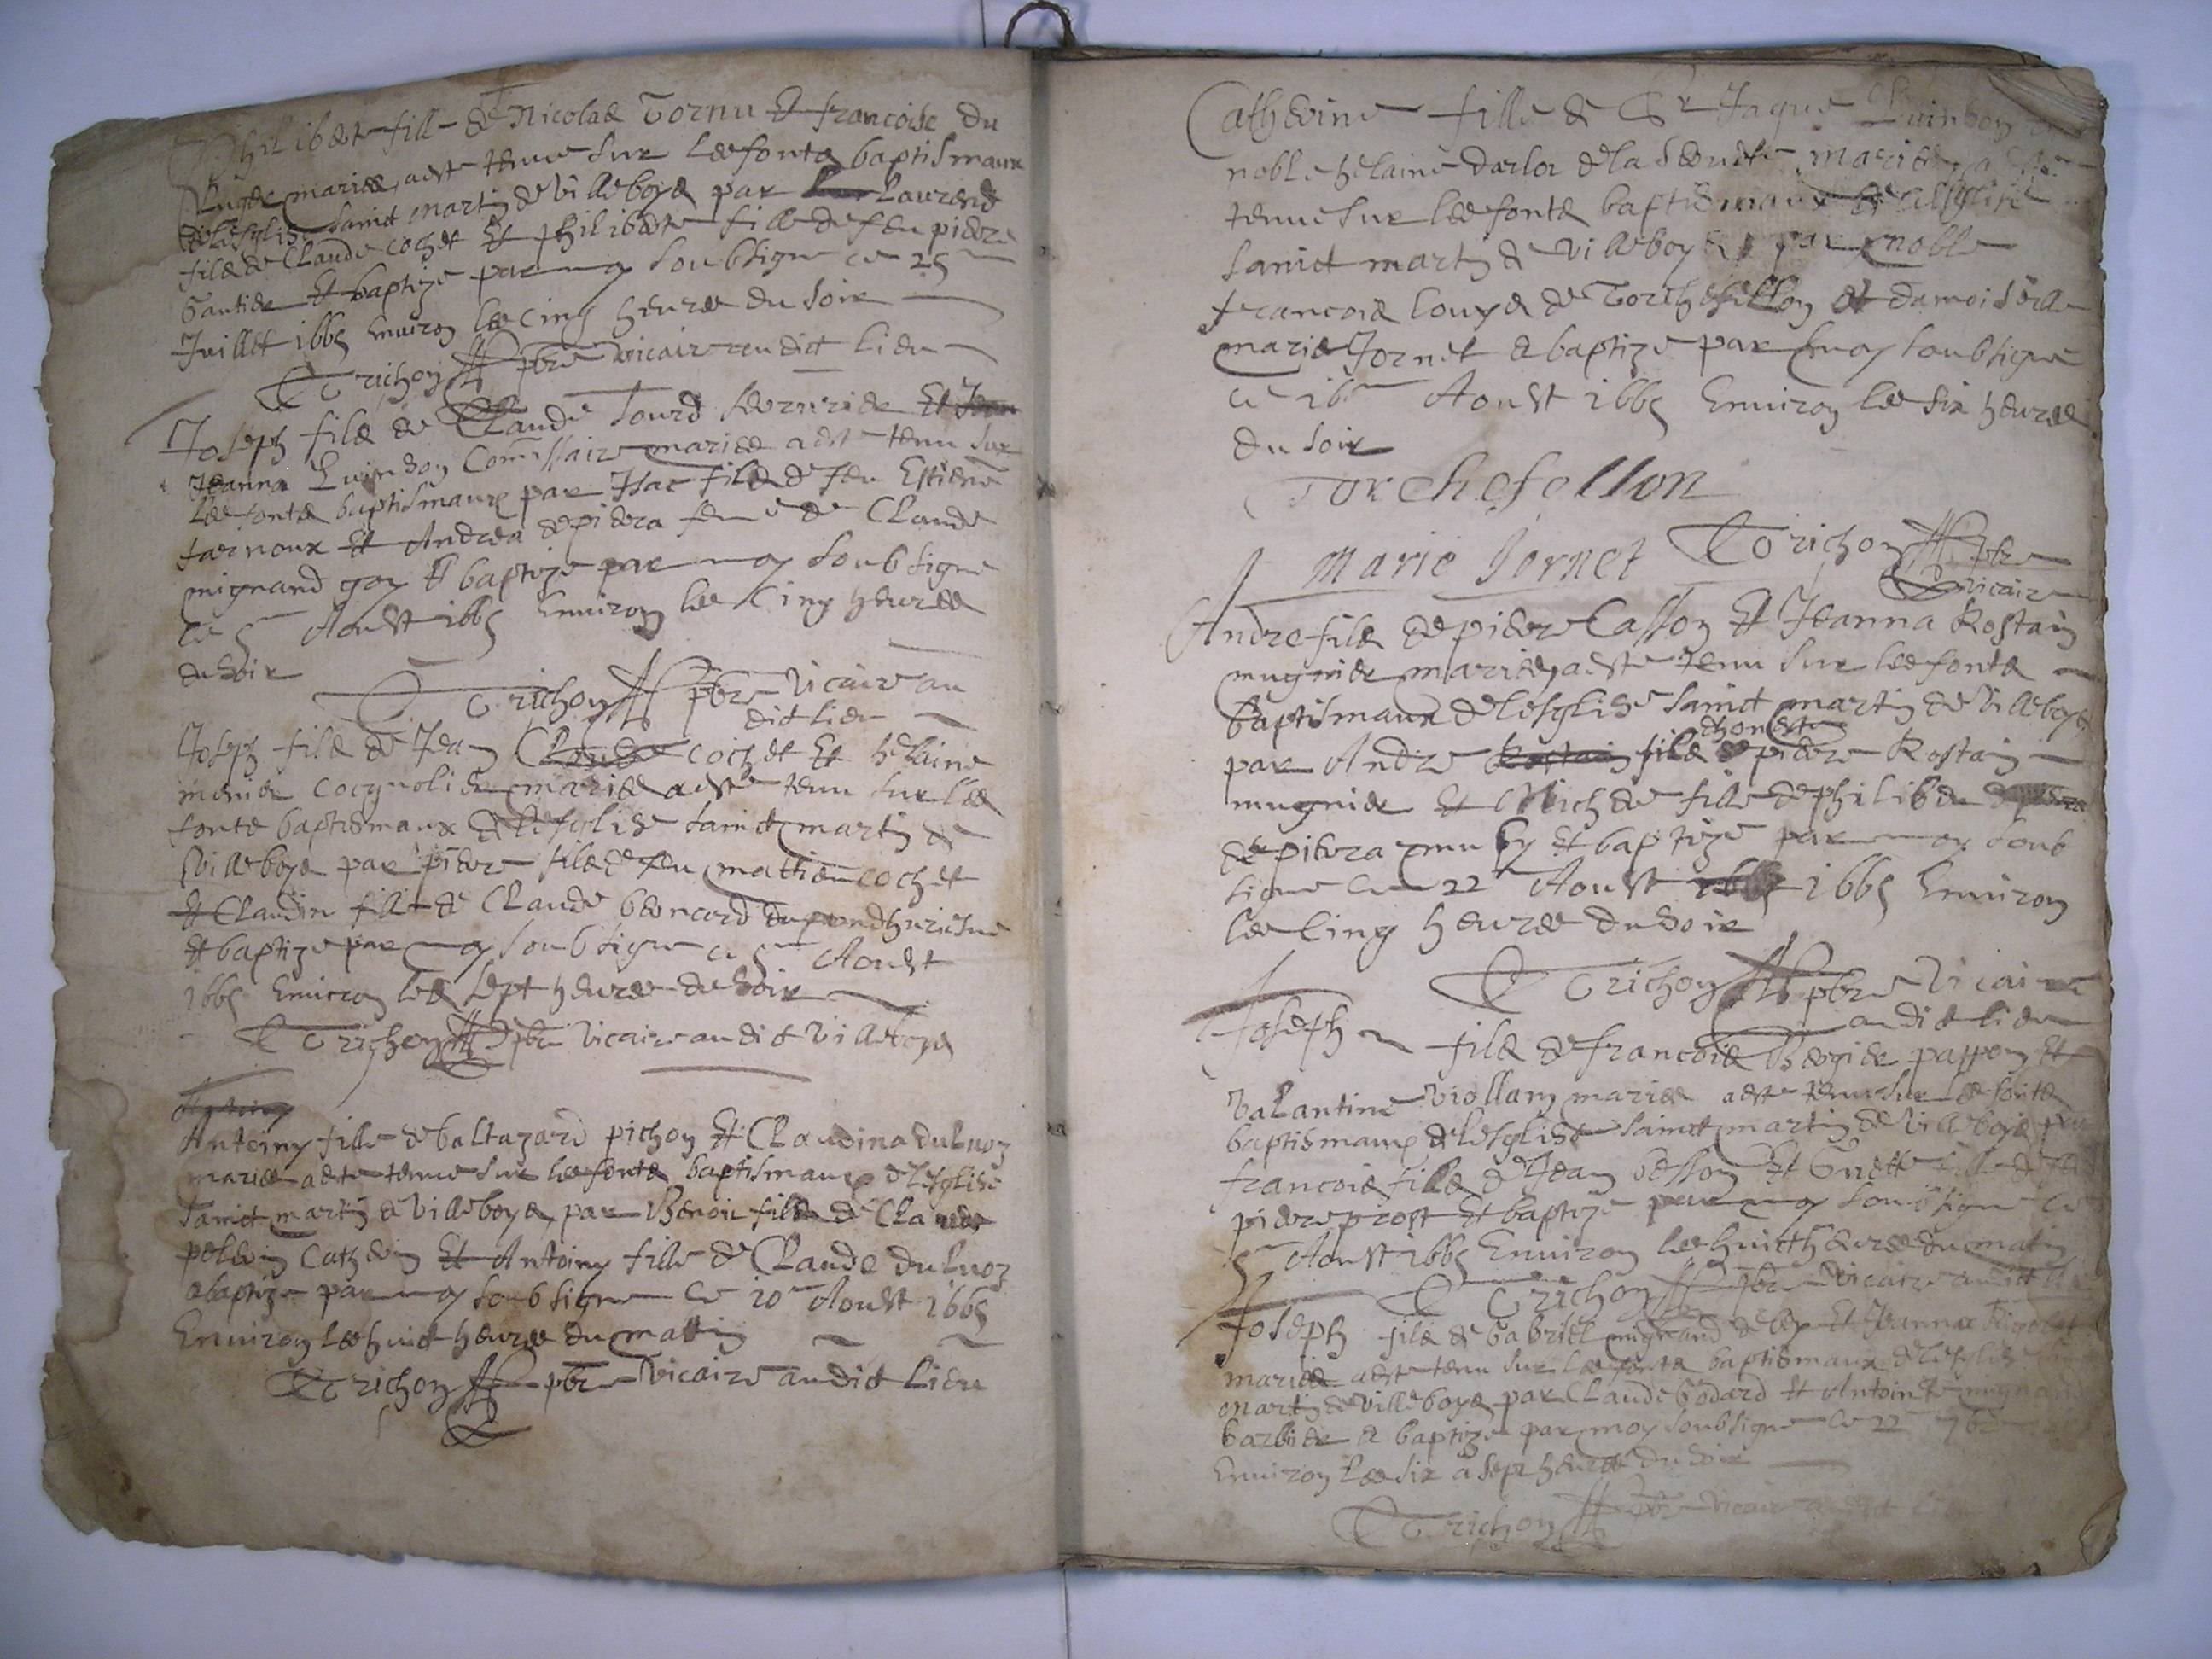 Philiberte fille de Nicolas Tornu et francoise du
mariés a esté tenue sur les fonts baptismaux
de lesglise sainct martin de villeboys par Laurend
fils de Claude cochet et philiberte fille de feu piere
Gautier et baptize par moy soubsigne ce 25
Juillet 1665 Environ les cinq heures du soir
Trichon pbre vicaire au dict lieu
Joseph fils de Claude Tourd et
Jeanna mariés a esté tenu sur
les fonts baptismaux par Isac fils de feu Estiene
tarnoux et Andrea depiera feme de Claude
mignand goy et baptize par moy soubsigne
ce 5 Aoust 1665 Environ les cinq heures
du soir
Trichon pbre vicaire au
dict lieu
Joseph fils de Jean Claude cochet et helaine
cocgnolier mariés a esté tenu sur les
fonts baptismaux de lesglise sainct martin de
villeboys par piere fils de feu mattieu cochet
et Claudin fille de Claude
et baptize par moy soubsigne ce 5 Aoust
1665 Environ les sept heures du soir
Trichon pbre vicaire au dict villeboys
Antoiny fille de baltazard pichon et Claudina duluoz
mariés a esté tenue sur les fonts baptismaux de lesglise
sainct martin de villeboys par Benoit fils de Claude
et Antoiny fille de Claude duluoz
et baptize par moy soubsigne ce 10 Aoust 1665
Environ les huict heures du mattin
Trichon pbre vicaire au dict lieu
Catherine fille de Sr Jaque
noble helaine darlos de la mariés
tenue sur les fonts baptismaux de lesglise
sainct martin de villeboys par noble
francois louys de Torchefellon et damoiselle
marie Jornet et baptize par moy soubsigne
ce 16 Aoust 1665 Environ les six heures
du soir
Torchefellon
Marie Jornet Trichon pbre
vicaire
Andre fils de piere Casson et Jeanna Rostain
mugnier mariés a esté tenu sur les fonts
baptismaux de lesglise sainct martin de villeboys
dhoneste
par Andre Rostain fils piere Rostain
mugnier et Michee fille de philiber
depiera et baptize par moy soub
signe ce 22 Aoust 1665 1665 Environ
les cinq heures du soir
Trichon pbre vicaire
au dict lieu
Joseph fils de francois Bergier pappon et
Valantine Viollan mariés a esté tenu sur les fonts
baptismaux de lesglise sainct martin de villeboys par
francois fils de Jean besson et Guette fille de feu
piere prost et baptize par moy soubsigne ce
5 Aoust 1665 Environ les huict heures du matin
Trichon pbre vicaire au dict
Joseph fils de Gabriel mignand et Jeanna
mariés a esté tenu sur les fonts baptismaux de lesglise
martin de villeboys par Claude Godard et Antoinete mignand
barbier et baptize par moy soubsigne ce 22
Environ les six a sept heures du soir
Trichon pbre vicaire au dict